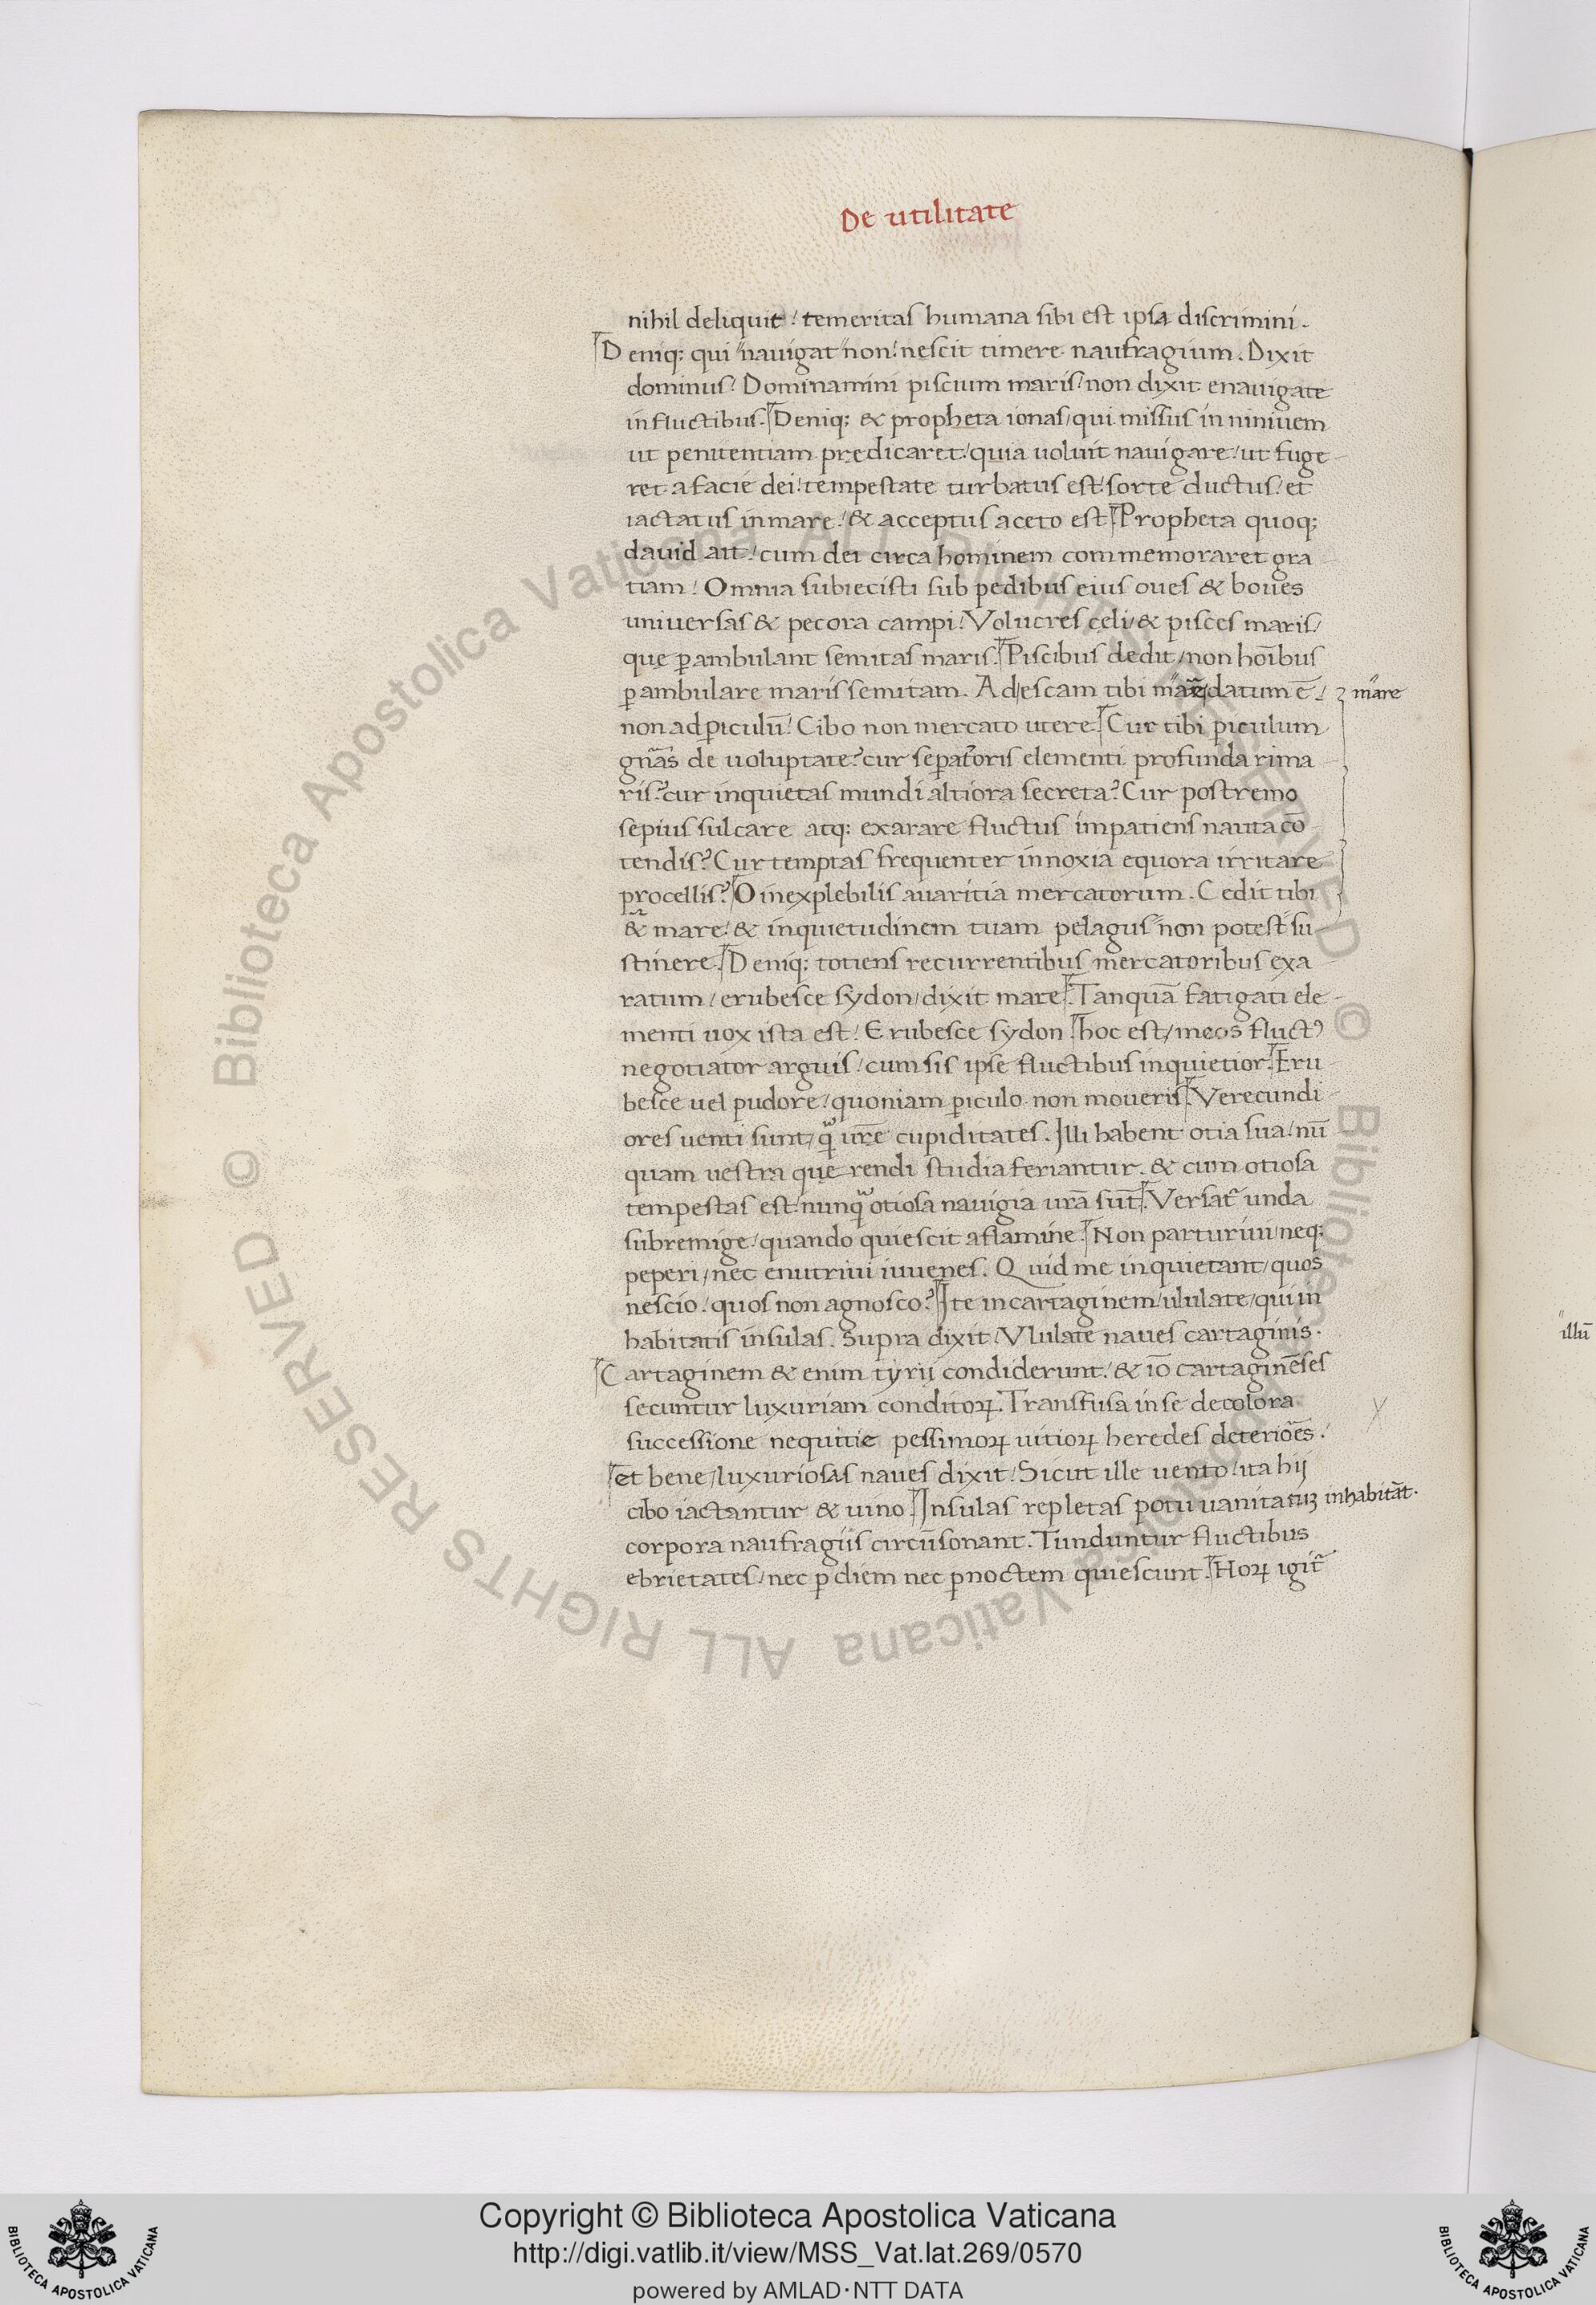 De utilitate
nihil deliquit / temeritas humana sibi est ipsa discrimini.
Deniq; qui nauigat non / nescit timere naufragium. Dixit
dominus / Dominamini piscium maris / non dixit enauigate
in fluctibus. Deniq; & propheta ionas / qui missus in niniuem
ut penitentiam predicaret / quia uoluit nauigare / ut fuge
ret a facie dei / tempestate turbatus est / sorte ductus / et
iactatus in mare / & acceptus a ceto est. Propheta quoq;
dauid ait / cum dei circa hominem commemoraret gra
tiam / Omnia subiecisti sub pedibus eius oues & boues
uniuersas & pecora campi / Volucres cęli / & pisces maris /
quę ꝑambulant semitas maris. Piscibus dedit / non hoībus
ꝑambulare maris semitam. Ad escam tibi mare datum ē / mare
non ad ꝑiculū / Cibo non mercato utere. Cur tibi ꝑiculum
gnās de uoluptate? cur separatoris elementi profunda rima
ris? cur inquietas mundi altiora secreta? Cur postremo
sepius sulcare atq; exarare fluctus impatiens nauta cō
tendis? Cur temptas frequenter innoxia equora irritare
procellis? O inexplebilis auaritia mercatorum. Cedit tibi
& mare / & inquietudinem tuam pelagus non potest su
stinere. Deniq; totiens recurrentibus mercatoribus exa
ratum / erubesce sydon / dixit mare. Tanquā fatigati ele
menti uox ista est / Erubesce sydon. hoc est / meos fluctꝰ
negotiator arguis / cum sis ipse fluctibus inquietior. Eru
besce uel pudore / quoniam ꝑiculo non moueris. Verecundi
ores uenti sunt / q̃ ur̄e cupiditates. Illi habent otia sua / nū
quam uestra querendi studia feriantur. & cum otiosa
tempestas est / nunq̃ otiosa nauigia ur̄a sūt. Versat᷑ unda
sub remige / quando quiescit a flamine. Non parturiui / neq;
peperi / nec enutriui iuuenes. Quid me inquietant / quos
nescio / quos non agnosco? Ite in cartaginem / ululate / qui in
habitatis insulas. Supra dixit / Vlulate naues cartaginis.
Cartaginem & enim tyrii condiderunt / & iō cartaginēses
secuntur luxuriam conditoꝝ. Transfusa in se decolora
successione nequitie pessimoꝝ uitioꝝ heredes deteriōes.
et bene / luxuriosas naues dixit / Sicut ille uento / ita hij
cibo iactantur & uino. Insulas repletas potu uanitatuꝫ inhabitāt.
corpora naufragiis circūsonant. Tunduntur fluctibus
ebrietates / nec ꝑ diem nec ꝑ noctem quiescunt. Hoꝝ igit᷑
illū
© Biblioteca Apostolica Vaticana ALL RIGHTS RESERVED © Biblioteca Apostolica Vaticana ALL RIGHTS RESERVED
Copyright © Biblioteca Apostolica Vaticana
http://digi.vatlib.it/view/MSS_Vat.lat.269/0570
powered by AMLAD·NTT DATA
BIBLIOTECA APOSTOLICA VATICANA
BIBLIOTECA APOSTOLICA VATICANA